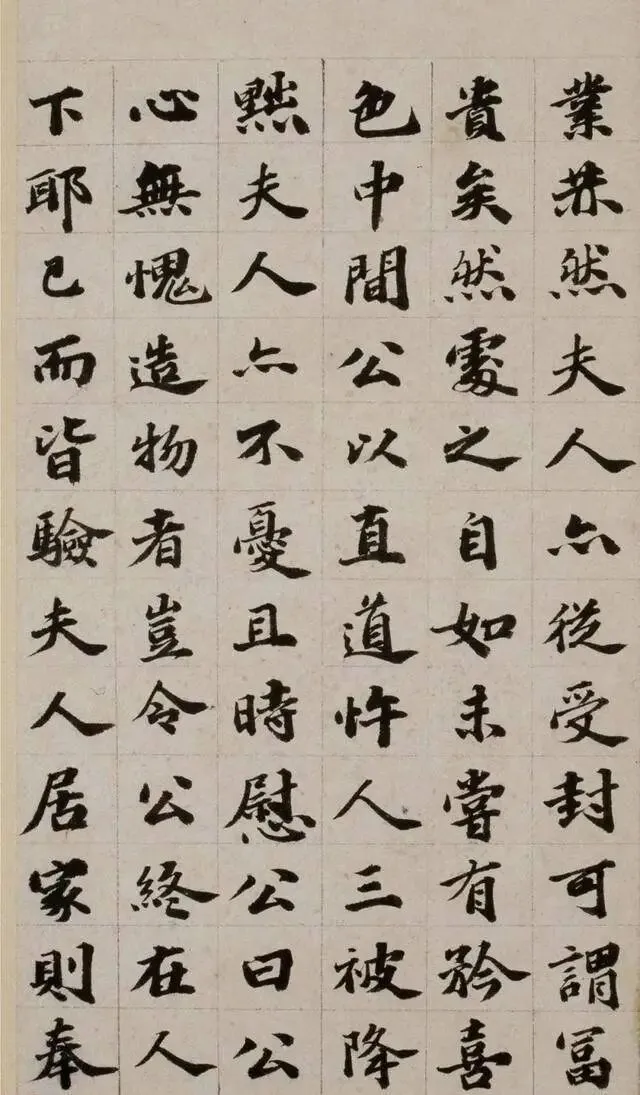 業恭然夫人亦從受封可謂冨
貴矣然處之自如未嘗有矜喜
色中間公以直道忤人三被降
黜夫人亦不憂且時慰公曰公
心無愧造物者豈令公終在人
下耶已而皆驗夫人居家則奉